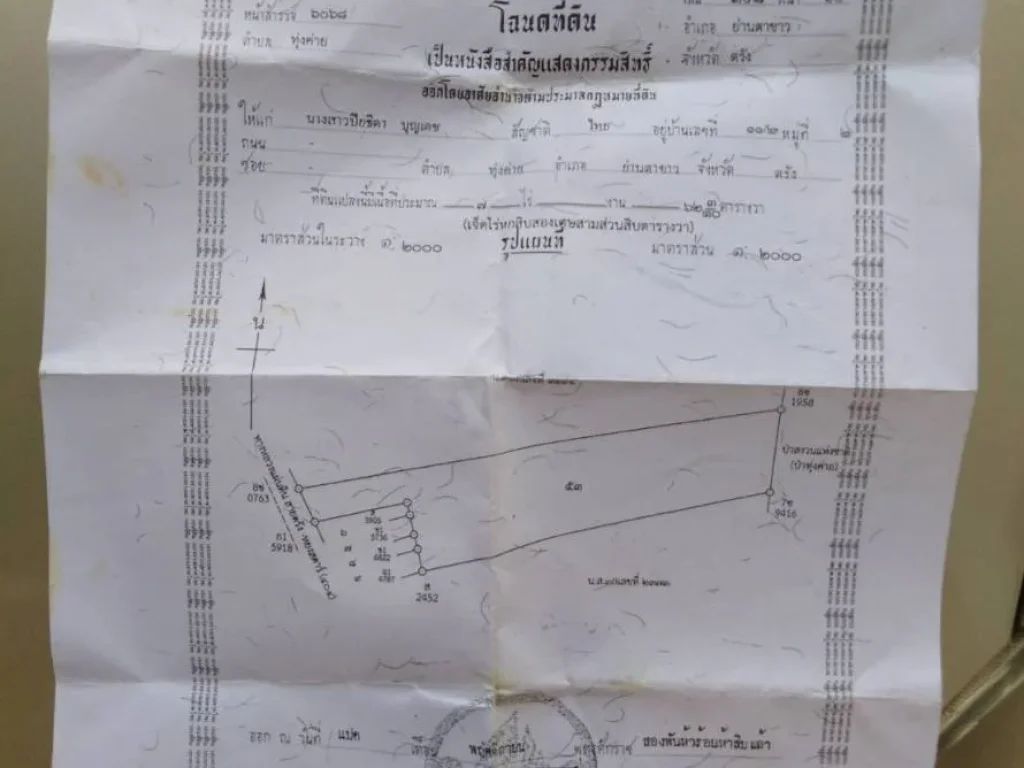 หน้าสำรวจ ๖๐๖๘
โฉนดที่ดิน
ตำบล ทุ่งค่าย
อำเภอ ย่านตาขาว
เป็นหนังสือสำคัญแสดงกรรมสิทธิ์
จังหวัด ตรัง
ออกโดยอาศัยอำนาจตามประมวลกฎหมายที่ดิน
ให้แก่ นางสาวปิยธิดา บุญเดช สัญชาติ ไทย อยู่บ้านเลขที่ หมู่ที่ ๒
ถนน -
ซอย - ตำบล ทุ่งค่าย อำเภอ ย่านตาขาว จังหวัด ตรัง
ที่ดินแปลงนี้มีเนื้อที่ประมาณ ๗ ไร่ - งาน ๖๒ ๓/๑๐ ตารางวา
(เจ็ดไร่หกสิบสองเศษสามส่วนสิบตารางวา)
มาตราส่วนในระวาง ๑: ๒๐๐๐
รูปแผนที่
มาตราส่วน ๑: ๒๐๐๐
น
1958
ป่าสงวนแห่งชาติ
(ป่าทุ่งค่าย)
0763
๕๓
9416
ก1
5918
5736
4822
4787
๒
๗
๘
๙
2452
ออก ณ วันที่ แปด เดือน พฤศจิกายน พุทธศักราช สองพันห้าร้อยห้าสิบเก้า